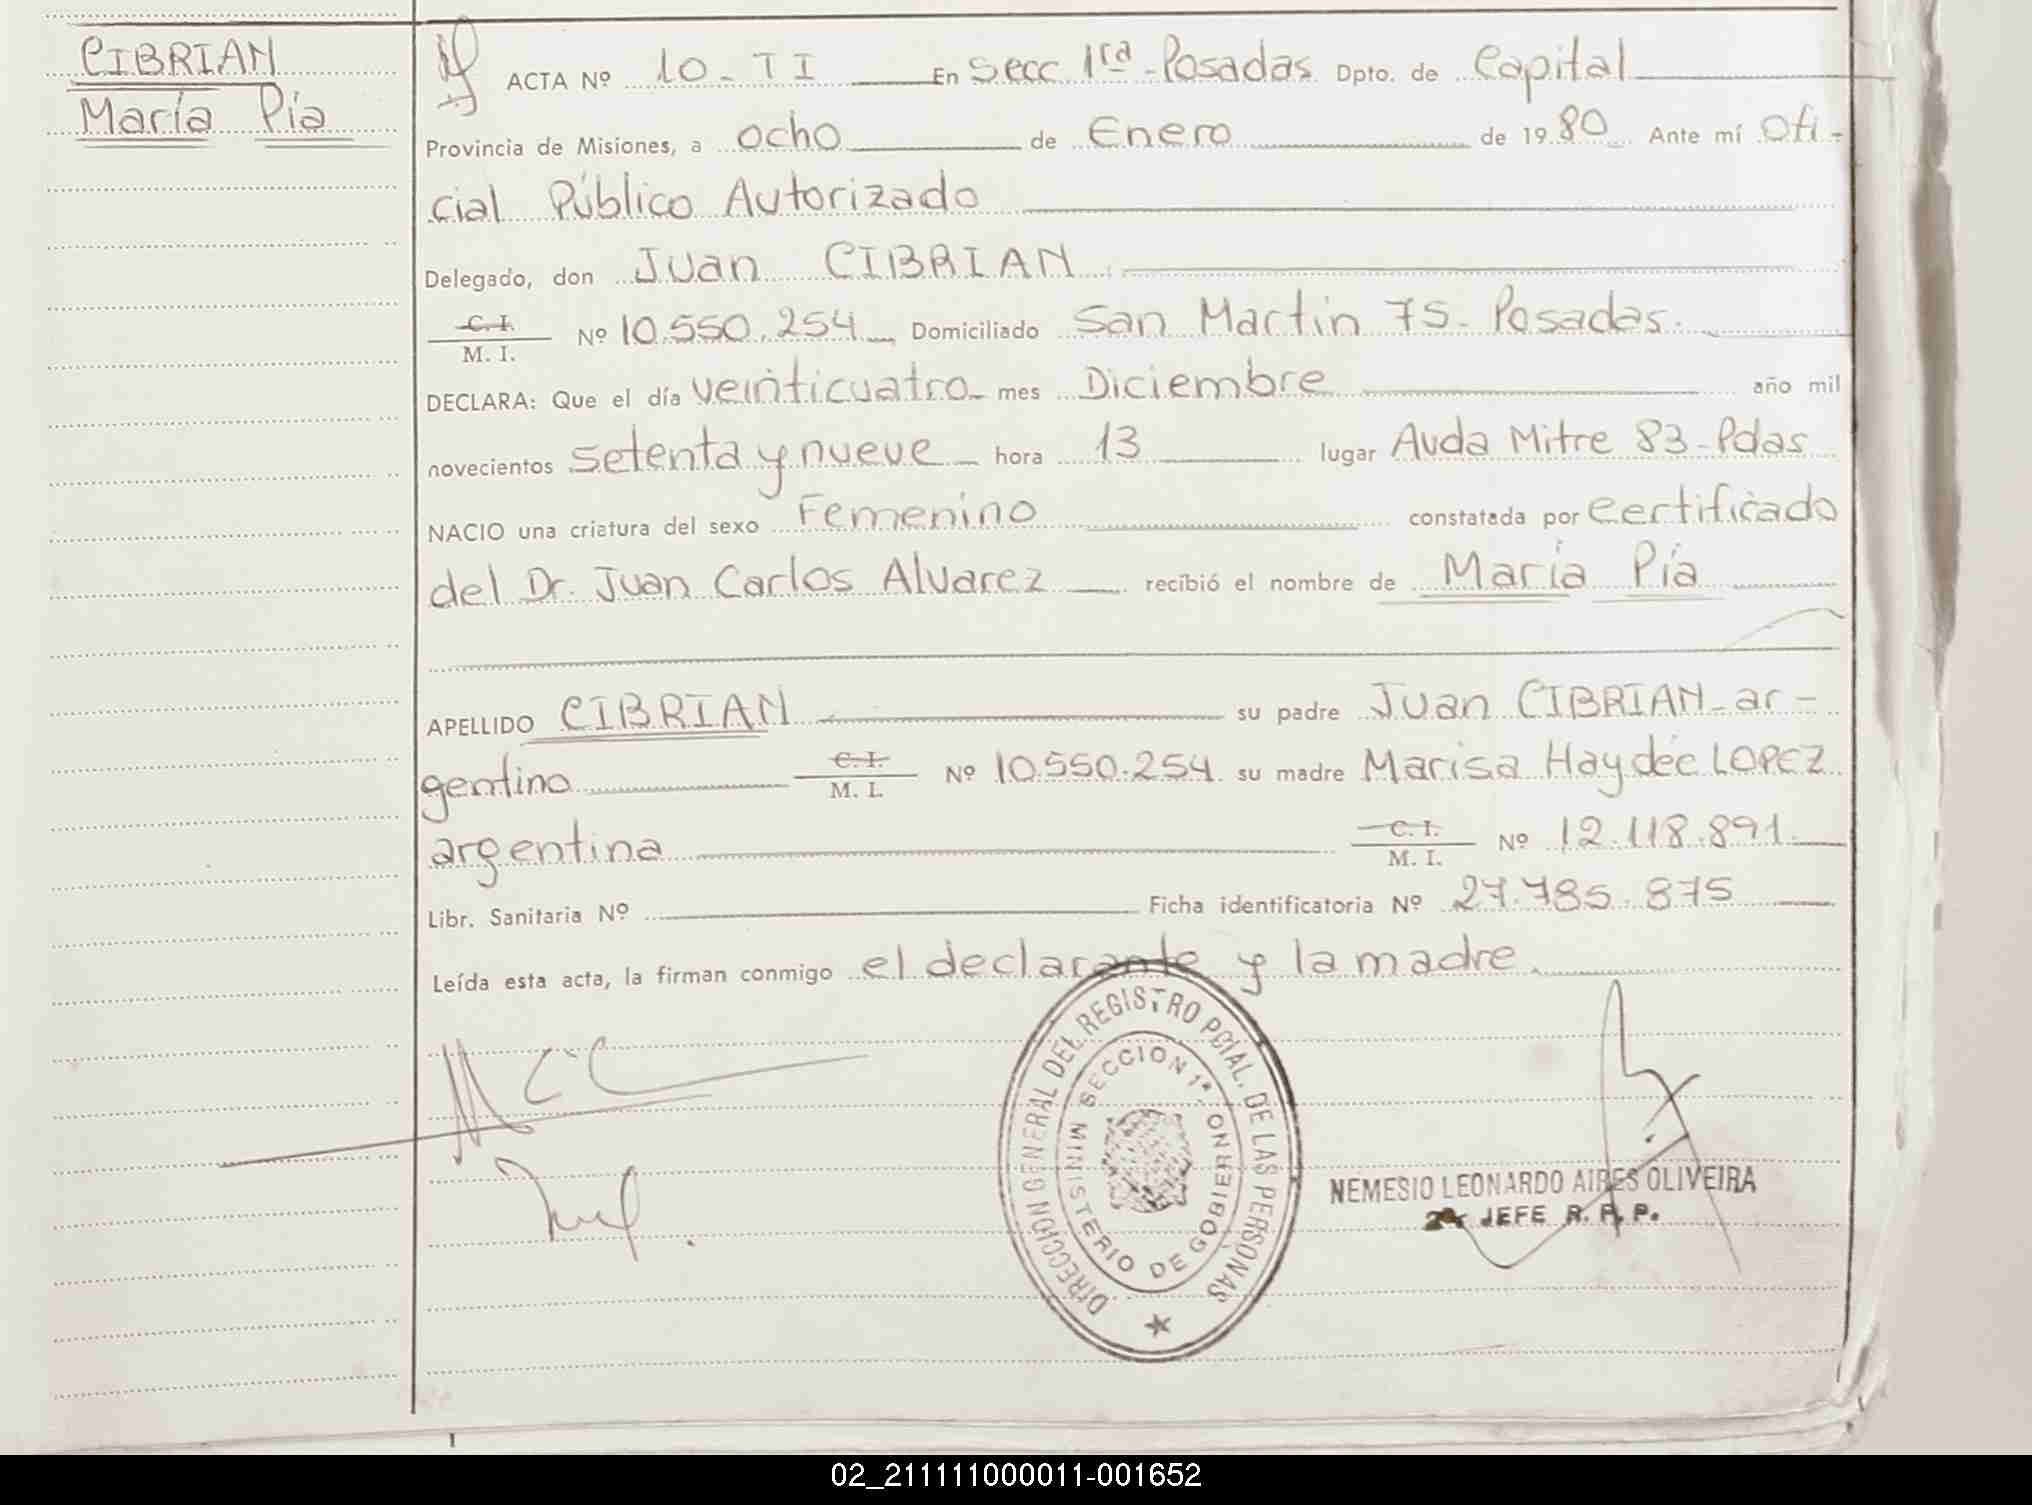 CIBRIAN
María Pía
ACTA Nº 10-TI En Secc 1ra-Posadas Dpto. de Capital
Provincia de Misiones, a ocho de Enero de 1980 Ante mí Ofi-
cial Público Autorizado
Delegado, don Juan CIBRIAN
C. I.
M. I. Nº 10.550.254 Domiciliado San Martin 75- Posadas.
DECLARA: Que el día veinticuatro mes Diciembre año mil
novecientos setenta y nueve hora 13 lugar Avda Mitre 83-Pdas
NACIO una criatura del sexo Femenino constatada por certificado
del Dr. Juan Carlos Alvarez recibió el nombre de María Pía
APELLIDO CIBRIAN su padre Juan CIBRIAN-ar-
gentino C. I.
M. I. Nº 10.550.254 su madre Marisa Haydée LOPEZ
argentina C. I.
M. I. Nº 12.118.891
Libr. Sanitaria Nº Ficha identificatoria Nº 27.785.875
Leída esta acta, la firman conmigo el declarante y la madre.
DIRECCION GENERAL DEL REGISTRO PCIAL. DE LAS PERSONAS
SECCION 1ª.
MINISTERIO DE GOBIERNO
NEMESIO LEONARDO AIRES OLIVEIRA
JEFE R. P. P.
02_211111000011-001652